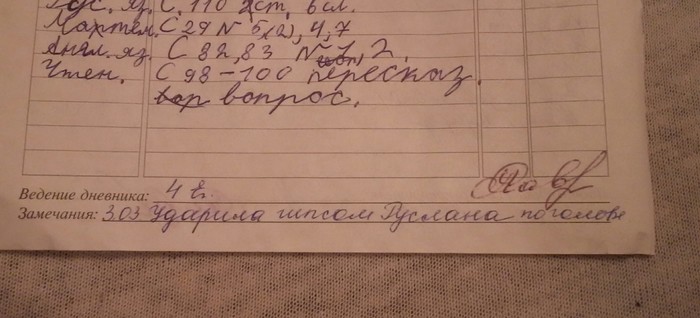 Рус. яз. С. 110 уст. 6 сл.
Матем. С 29 № 5,(2), 4, 7
Англ. яз. С 82, 83 № 1, 2.
Чтен. С 98-100 пересказ.
вопрос.
Ведение дневника: 4
Замечания: 3.03 Ударила гипсом Руслана по голове